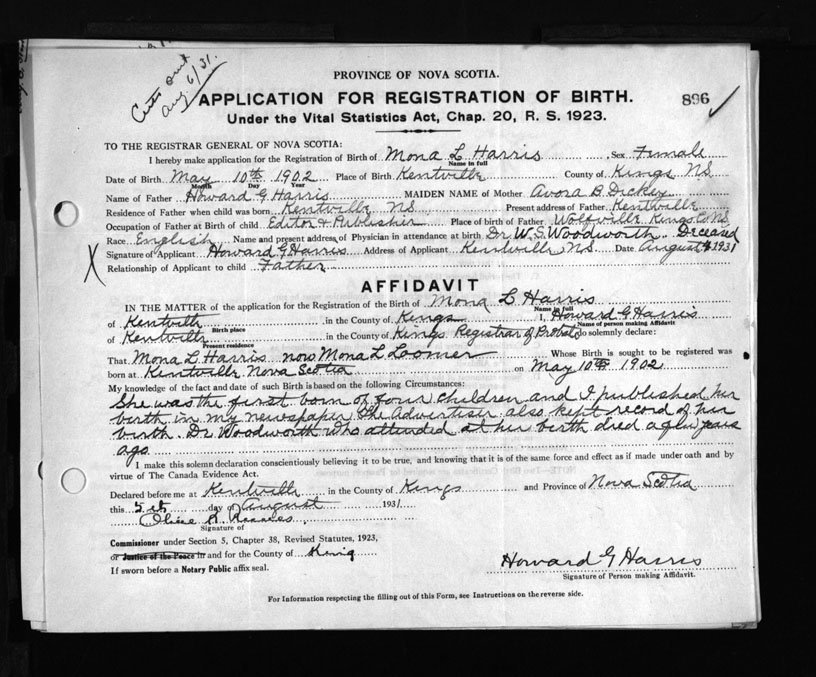 PROVINCE OF NOVA SCOTIA.
Certs sent
Aug 6/31.
APPLICATION FOR REGISTRATION OF BIRTH.
896
Under the Vital Statistics Act, Chap. 20, R. S. 1923.
TO THE REGISTRAR GENERAL OF NOVA SCOTIA:
I hereby make application for the Registration of Birth of Mona L Harris, Sex Female
Name in full
Date of Birth May 10th 1902 Place of Birth Kentville County of Kings NS
Month Day Year
Name of Father Howard G Harris MAIDEN NAME of Mother Avora B. Dickey
Residence of Father when child was born Kentville NS Present address of Father Kentville
Occupation of Father at Birth of child Editor & Publisher Place of birth of Father Wolfville Kings Co NS
Race English Name and present address of Physician in attendance at birth Dr W. S. Woodworth. Deceased
Signature of Applicant Howard G Harris Address of Applicant Kentville NS Date August 4 1931
X Relationship of Applicant to child Father
AFFIDAVIT
IN THE MATTER of the application for the Registration of the Birth of Mona L Harris
Name in full
of Kentville in the County of Kings I, Howard G Harris
Birth place Name of person making Affidavit
of Kentville in the County of Kings Registrar of Probate do solemnly declare:
Present residence
That Mona L Harris now Mona L Loomer Whose Birth is sought to be registered was
born at Kentville Nova Scotia on May 10th 1902
My knowledge of the fact and date of such Birth is based on the following Circumstances:
She was the first born of four children and I published her
birth in my newspaper The Advertiser also kept record of her
birth. Dr Woodworth who attended at her birth died a few years
ago
I make this solemn declaration conscientiously believing it to be true, and knowing that it is of the same force and effect as if made under oath and by
virtue of The Canada Evidence Act.
Declared before me at Kentville in the County of Kings and Province of Nova Scotia
this 5th day of August 1931
Signature of
Commissioner under Section 5, Chapter 38, Revised Statutes, 1923,
or Justice of the Peace in and for the County of King
If sworn before a Notary Public affix seal.
Howard G Harris
Signature of Person making Affidavit.
For Information respecting the filling out of this Form, see Instructions on the reverse side.